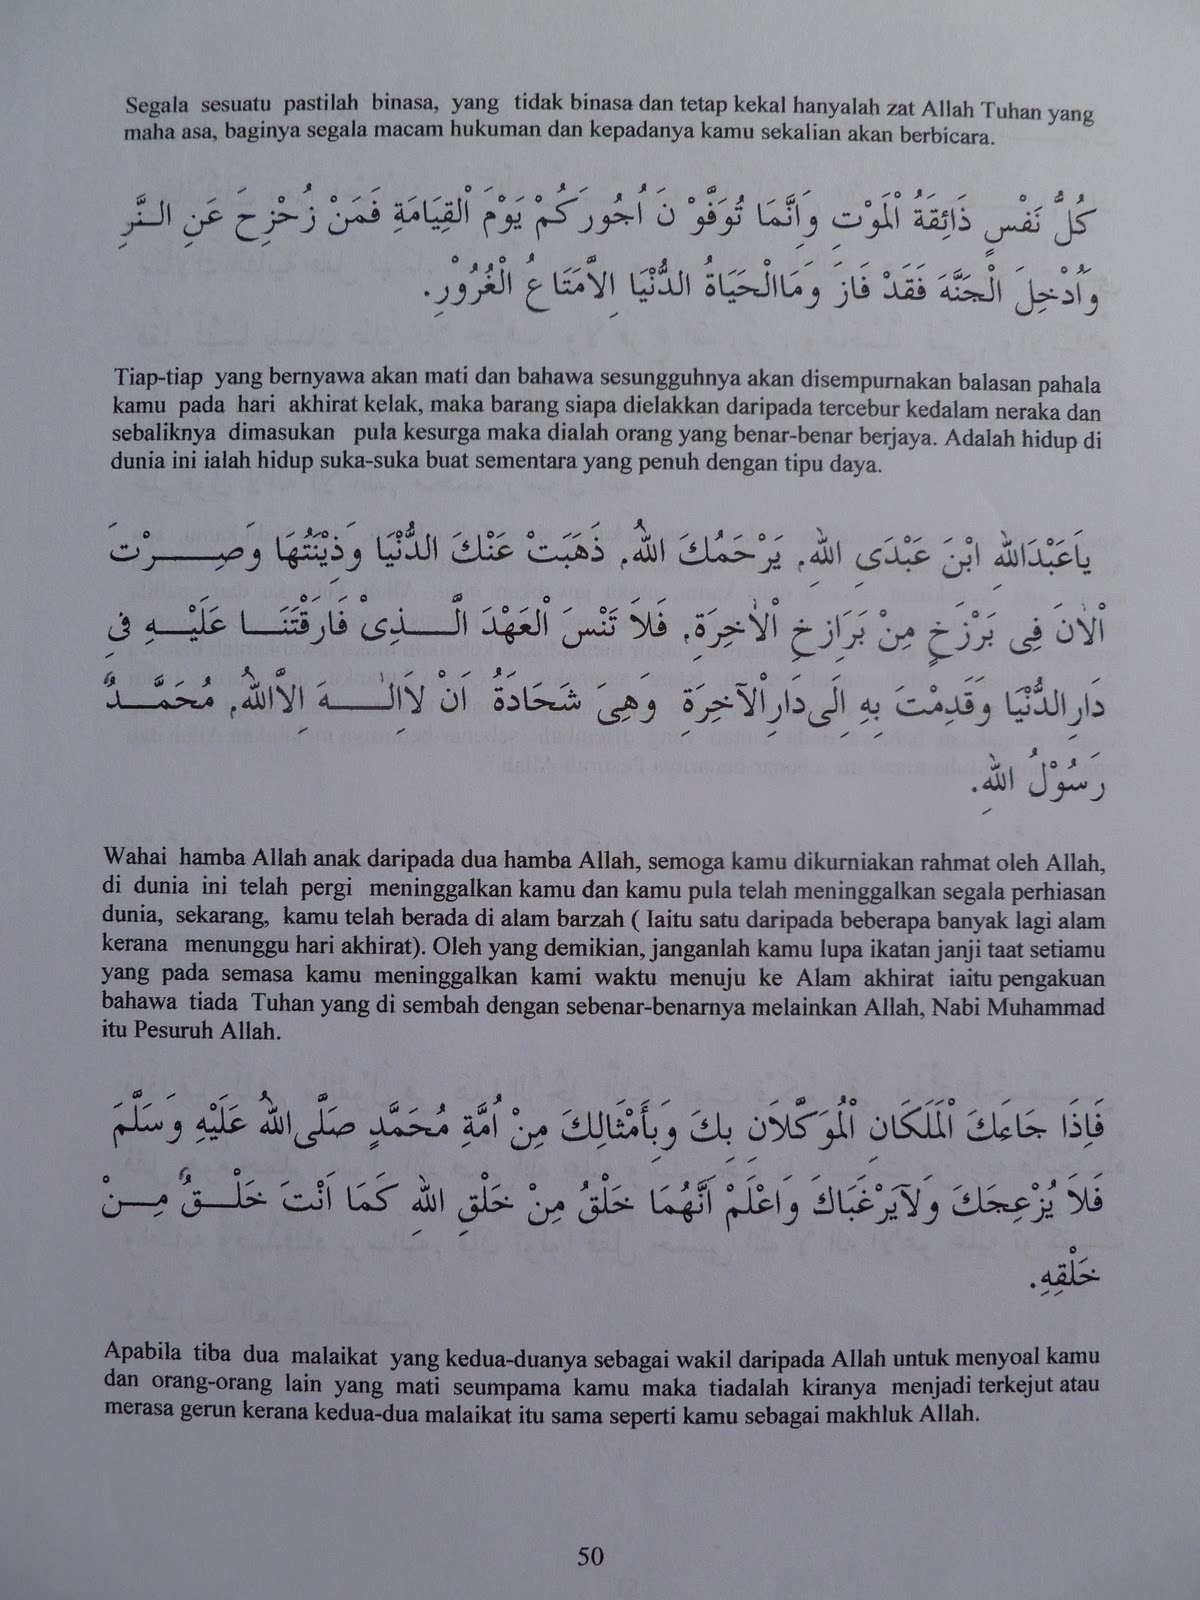 Segala sesuatu pastilah binasa, yang tidak binasa dan tetap kekal hanyalah zat Allah Tuhan yang
maha asa, baginya segala macam hukuman dan kepadanya kamu sekalian akan berbicara.
كُلُّ نَفْسٍ ذَائِقَةُ الْمَوْتِ وَاَِنَّمَا تُوَفَّوْ نَ اُجُورَكُمْ يَوْمَ الْقِيَامَةِ فَمَنْ زُحْزِحَ عَنِ النَّرِ
وَاُدْخِلَ الْجَنَّهَ فَقَدْ فَازَ وَمَاالْحَيَاةُ الدُّنْيَا اِلاَّمَتَاعُ الْغُرُوْرِ.
Tiap-tiap yang bernyawa akan mati dan bahawa sesungguhnya akan disempurnakan balasan pahala
kamu pada hari akhirat kelak, maka barang siapa dielakkan daripada tercebur kedalam neraka dan
sebaliknya dimasukan pula kesurga maka dialah orang yang benar-benar berjaya. Adalah hidup di
dunia ini ialah hidup suka-suka buat sementara yang penuh dengan tipu daya.
يَاعَبْدَاللهِ ابْنَ عَبْدَىِ اللهِ. يَرْحَمُكَ اللهُ. ذَهَبَتْ عَنْكَ الدُّنْيَا وَذِيْنَتُهَا وَصِرْتَ
اْلاٰنَ فِى بَرْزَخٍ مِنْ بَرَازِخِ اْلاٰخِرَةِ. فَلاَ تَنْسَ الْعَهْدَ الَّذِىْ فَارَقْتَنَا عَلَيْهِ فِي
دَارِالدُّنْيَا وَقَدِمْتَ بِهِ اِلَى دَارِاْلآخِرَةِ وَهِىَ شَحَادَةُ اَنْ لاَاِلٰهَ اِلاَّاللهُ. مُحَمَّدٌ
رَسُوْلُ اللهِ.
Wahai hamba Allah anak daripada dua hamba Allah, semoga kamu dikurniakan rahmat oleh Allah,
di dunia ini telah pergi meninggalkan kamu dan kamu pula telah meninggalkan segala perhiasan
dunia, sekarang, kamu telah berada di alam barzah ( Iaitu satu daripada beberapa banyak lagi alam
kerana menunggu hari akhirat). Oleh yang demikian, janganlah kamu lupa ikatan janji taat setiamu
yang pada semasa kamu meninggalkan kami waktu menuju ke Alam akhirat iaitu pengakuan
bahawa tiada Tuhan yang di sembah dengan sebenar-benarnya melainkan Allah, Nabi Muhammad
itu Pesuruh Allah.
فَاِذَا جَاءَكَ الْمَلَكَانِ الْمُوَكَّلاَنِ بِكَ وَبِأَمْثَالِكَ مِنْ اُمَّةِ مُحَمَّدٍ صَلَّى اللهُ عَلَيْهِ وَسَلَّمَ
فَلاَ يُزْعِجَكَ وَلاَيَرْغَبَاكَ وَاعْلَمْ اَنَّهُمَا خَلْقُ مِنْ خَلْقِ اللهِ كَمَا اَنْتَ خَلْقٌ مِنْ
خَلْقِهِ.
Apabila tiba dua malaikat yang kedua-duanya sebagai wakil daripada Allah untuk menyoal kamu
dan orang-orang lain yang mati seumpama kamu maka tiadalah kiranya menjadi terkejut atau
merasa gerun kerana kedua-dua malaikat itu sama seperti kamu sebagai makhluk Allah.
50